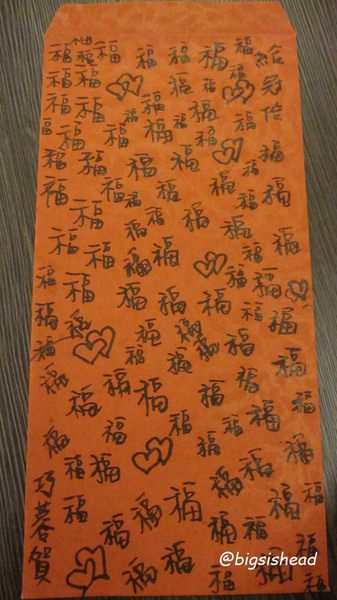 給冠伶
福福福福福福福
福福福福福
福福福福福
福福福福福福
福福福福福
福福福福福福福
福福福福福
福福福福福福
福福福福福
福福福福福
福福福福福福福
福福福福福福
福福福福福福
福福福福福
福福福福福
福福福福福福福
福福福福福福
福福福福福
福福福福福
巧蓉賀
@bigsishead